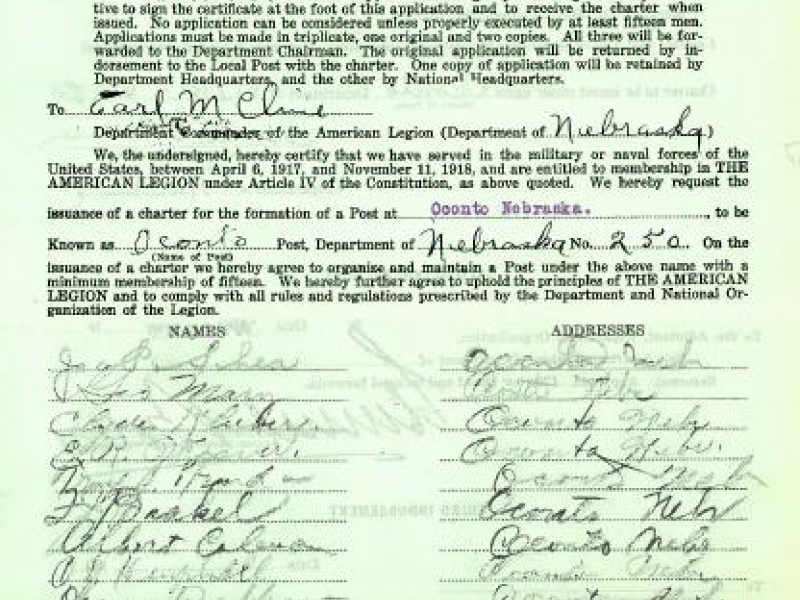 tive to sign the certificate at the foot of this application and to receive the charter when
issued. No application can be considered unless properly executed by at least fifteen men.
Applications must be made in triplicate, one original and two copies. All three will be for-
warded to the Department Chairman. The original application will be returned by in-
dorsement to the Local Post with the charter. One copy of application will be retained by
Department Headquarters, and the other by National Headquarters.
To Earl M Cline
Department Commander of the American Legion (Department of Niebraska)
We, the undersigned, hereby certify that we have served in the military or naval forces of the
United States, between April 6, 1917, and November 11, 1918, and are entitled to membership in THE
AMERICAN LEGION under Article IV of the Constitution, as above quoted. We hereby request the
issuance of a charter for the formation of a Post at Oconto Nebraska. , to be
Known as Oconto Post, Department of Niebraska No. 250. On the
(Name of Post)
issuance of a charter we hereby agree to organize and maintain a Post under the above name with a
minimum membership of fifteen. We hereby further agree to uphold the principles of THE AMERICAN
LEGION and to comply with all rules and regulations prescribed by the Department and National Or-
ganization of the Legion.
NAMES ADDRESSES
Shea Oconto Nebr
Geo Nebr
Clyde Oconto Nebr
Oconto Nebr.
Oconto Nebr
Oconto Nebr
Albert Oconto Nebr
Oconto Nebr